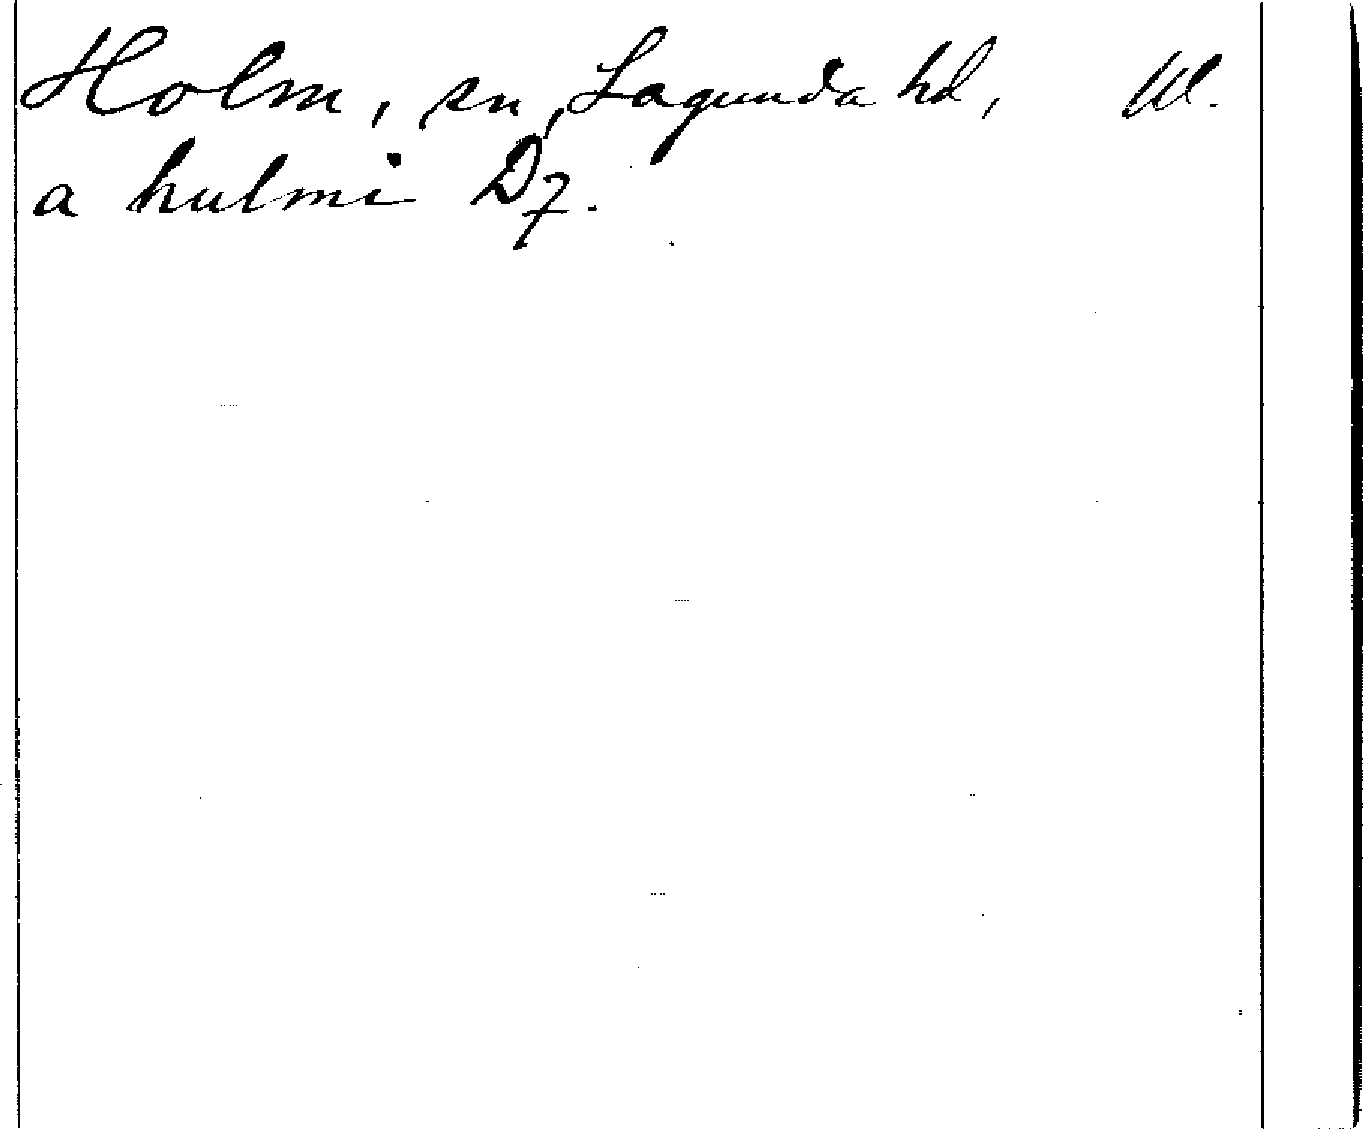 Holm, sn, Lagunda hd, Ul.
a hulmi D7.